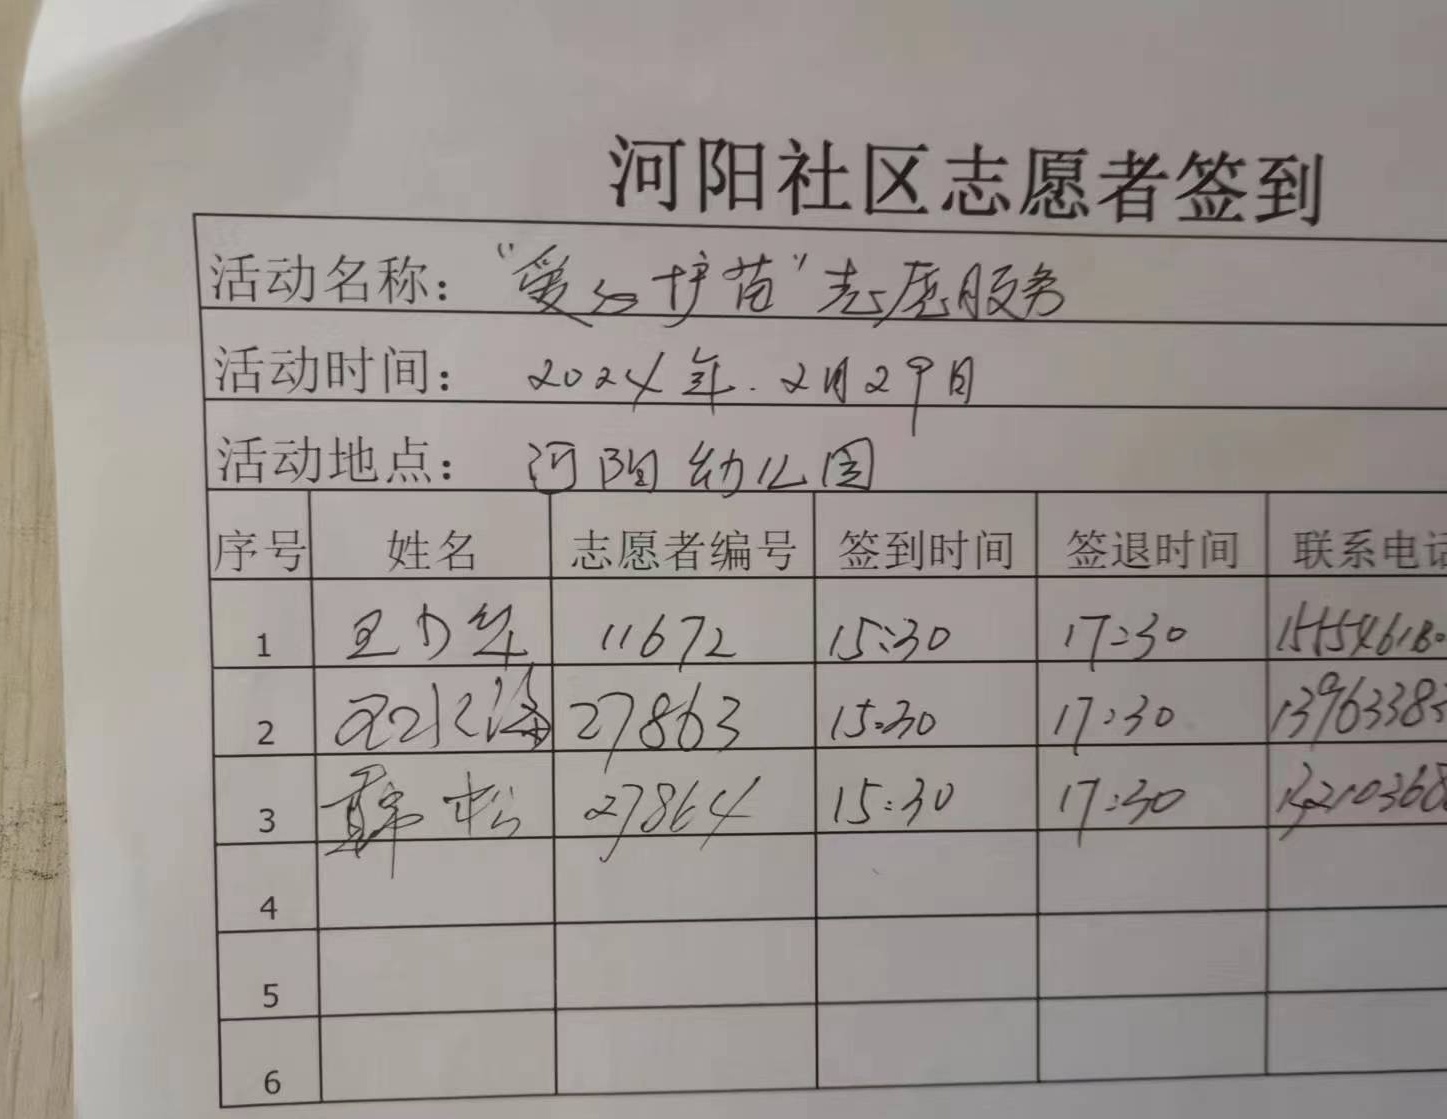 河阳社区志愿者签到
活动名称："爱心护苗"志愿服务
活动时间：2024年.2月29日
活动地点：河阳幼儿园
序号 姓名 志愿者编号 签到时间 签退时间 联系电话
1 11672 15:30 17:30
2 27863 15:30 17:30 13963383
3 松 27864 15:30 17:30
4
5
6